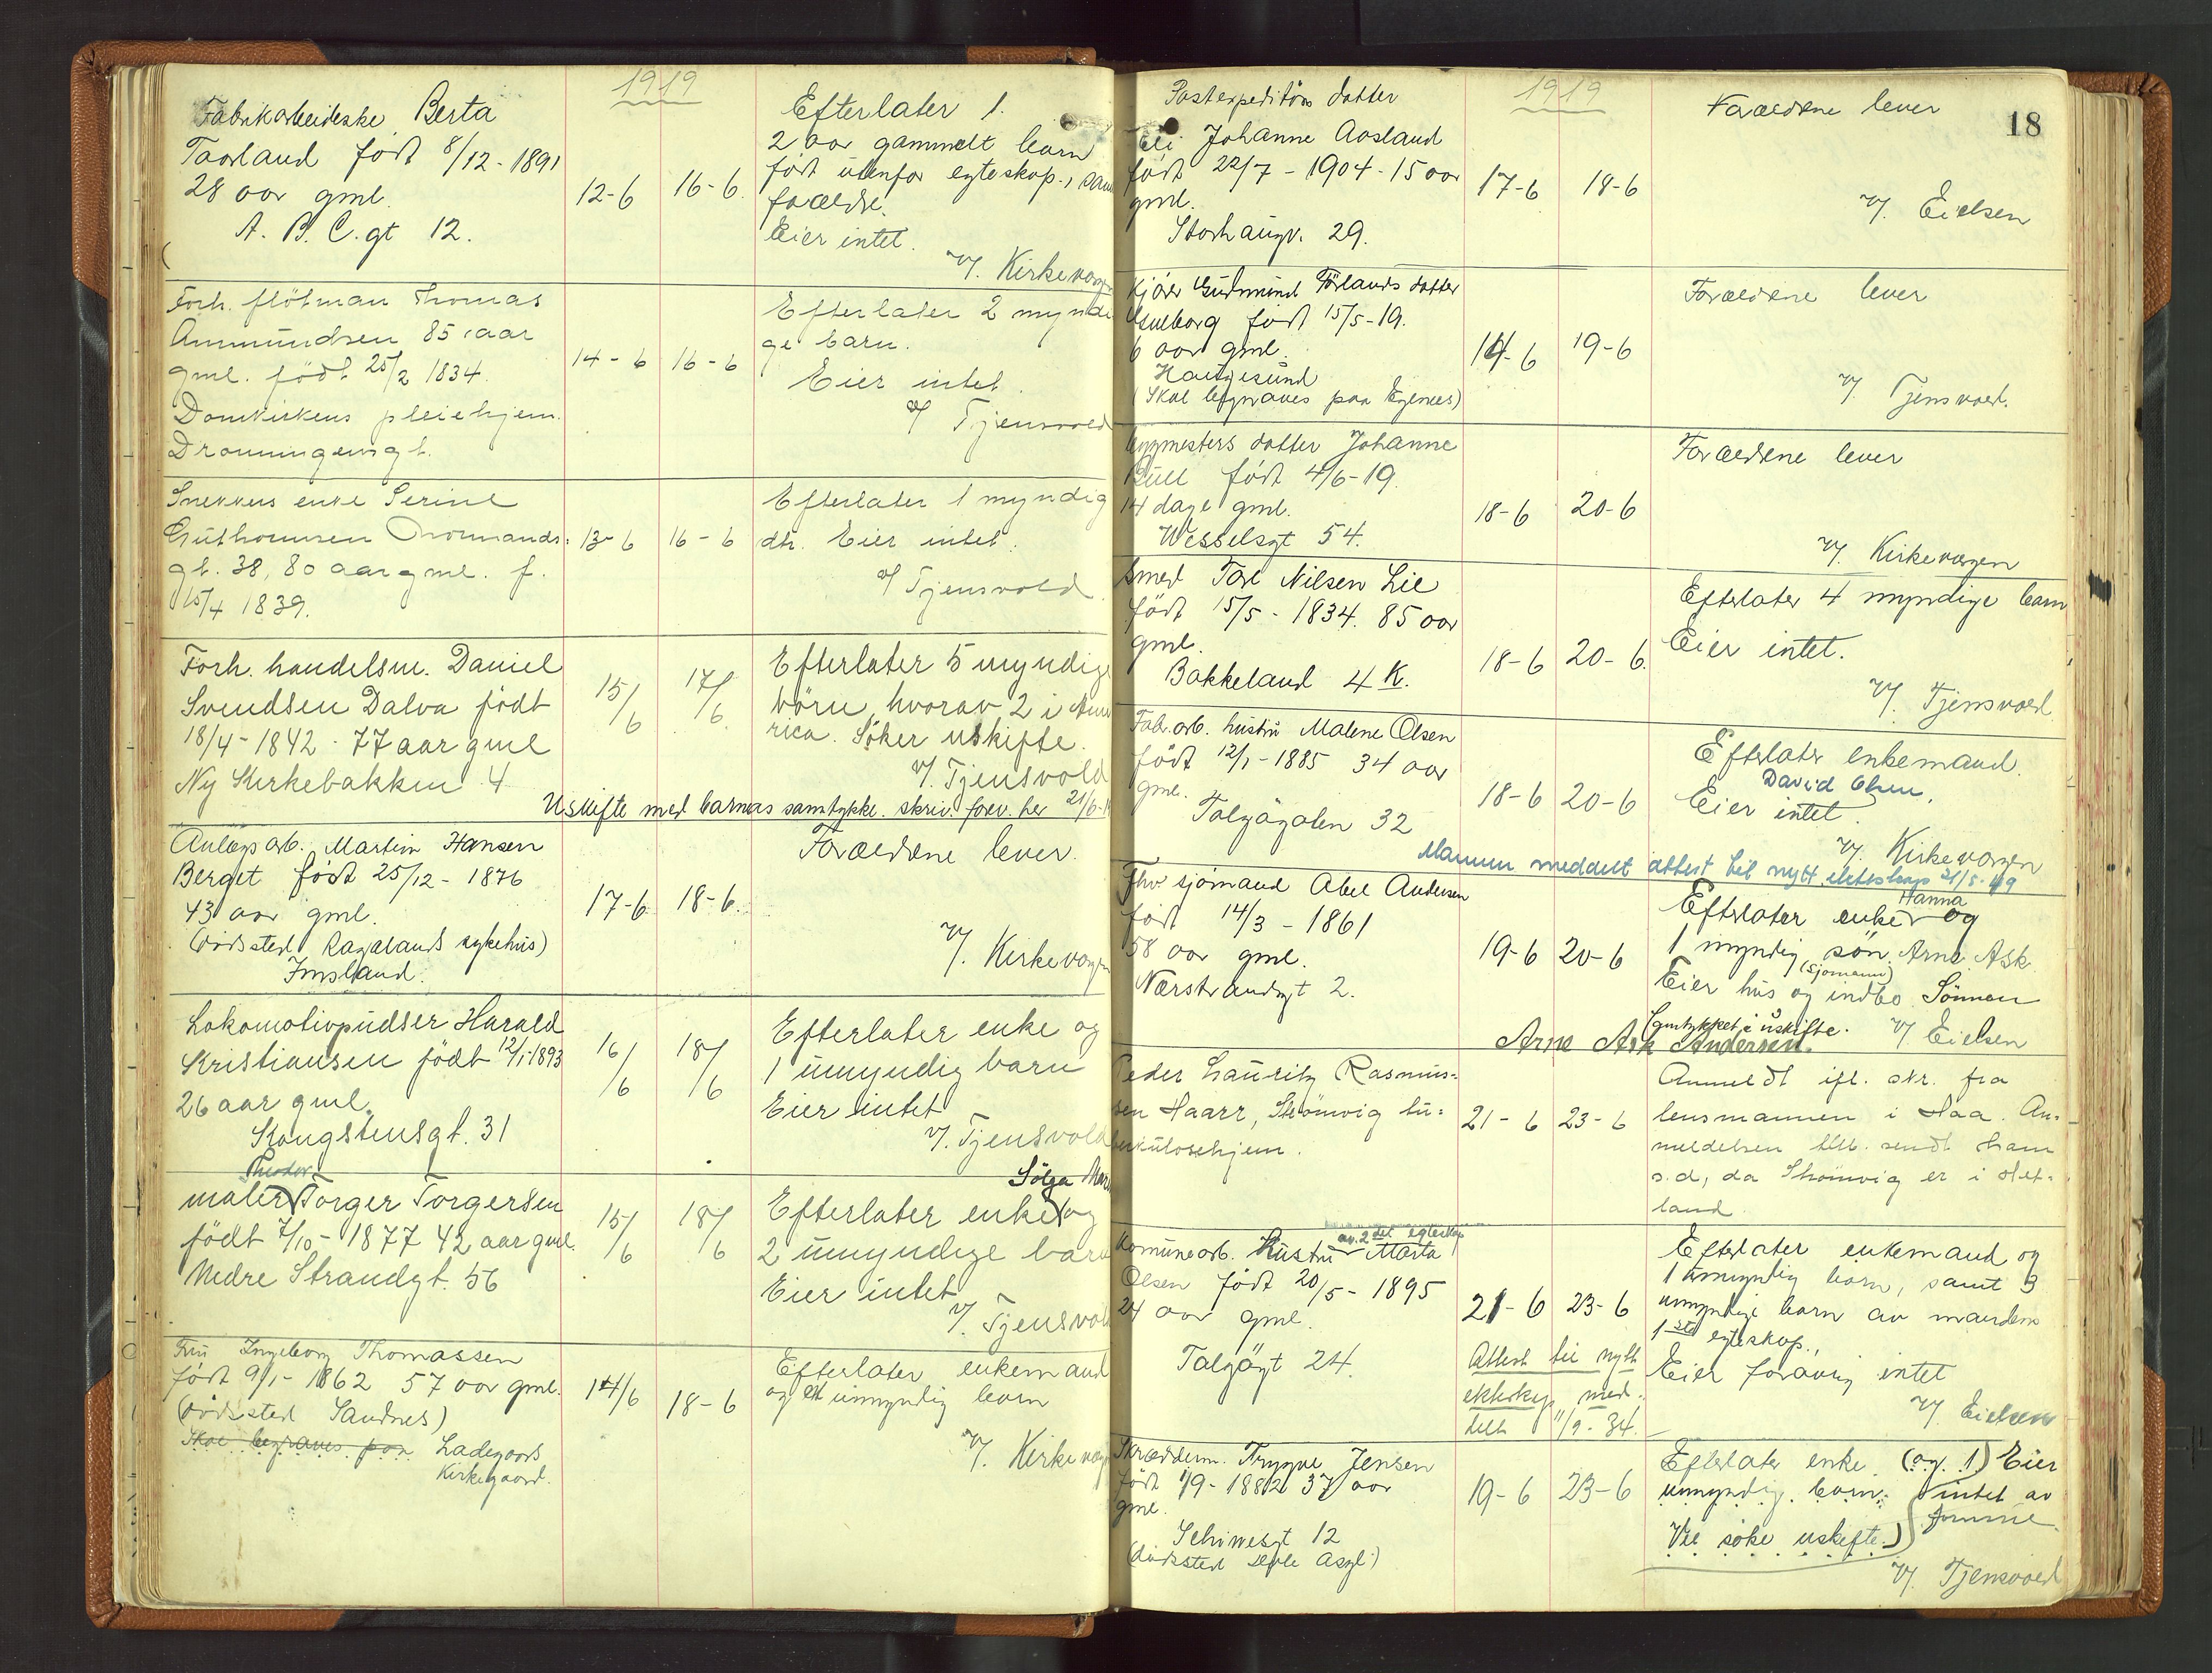 1919
Fabrikarbeiderske Berta
Taarland født 8/12-1891
28 aar gml.
A. B. C. gt 12.
12-6
16-6.
Efterlater 1.
2 aar gammelt barn
født utenfor egteskap, sam
forældre.
Eier intet.
v/. Kirkevargen
Forh. flötman Thomas
Ammundsen 85 aar
gml. født 25/2 1834.
Domkirkens pleiehjem.
Dronningensgt.
14-6
16-6
Efterlater 2 myndi
ge barn.
Eier intet.
v/ Tjensvold
Snekkers enke Serine
Guthormsen Normands-
gt. 38, 80 aar gml. f.
15/4 1839.
13-6
16-6
Efterlater 1 myndig
dtr. Eier intet.
v/ Tjensvold
Forh. handelsm. Daniel
Svendsen Dalva født
18/4-1842. 77 aar gml
Ny Kirkebakken 4
15/6
17/6
Efterlater 5 myndige
börn, hvorav 2 i Ame
rica. Söker uskifte.
v/. Tjensvold
Uskifte med barnas samtykke. skriv. forev. her 21/6-19
Anlægsarb. Martin Hansen
Berget født 25/12-1876
43 aar gml.
(dödssted Rogalands sykehus)
Imsland.
17-6
18-6.
Forældrene lever.
v/. Kirkevargen
Lokomotivpudser Harald
Kristiansen födt 12/1-1893
26 aar gml.
Kongstensgt. 31
16/6
18/6
Efterlater enke og
1 umyndig barn
Eier intet
v/. Tjensvold
Theodor
maler Torger Torgersen
født 7/10-1877 42 aar gml.
Nedre Strandgt. 56
15/6
18/6
Sölga Mar
Efterlater enke og
2 umyndige barn
Eier intet
v/. Tjensvold
Fru Ingeborg Thomassen
født 9/1-1862 57 aar gml.
(dødssted Sandnes)
Skal begraves paa Ladegaards
Kirkegaard.
14/6
18-6
Efterlater enkemand
og et umyndig barn
v/. Kirkevarg
18
1919
Postexpeditörs datter
Eli Johanne Aasland
født 22/7-1904-15 aar
gml.
Storhaugv. 29.
17-6
18-6
Forældrene lever
v/. Eielsen
Kjörer Gudmund Förlands datter
født 15/5-19.
6 aar gml.
Haugesund
(Skal begraves paa Egenes)
14-6
19-6
Forældrene lever
v/. Tjensvold.
bygmesters datter Johanne
Bull født 4/6-19.
14 dage gml.
Wesselsgt 54.
18-6
20-6
Forældrene lever
v/. Kirkevargen
Smed Tarl Nilsen Lie
født 15/5-1834. 85 aar
gml.
Bakkeland 4 K.
18-6
20-6.
Efterlater 4 myndige barn
Eier intet.
v/. Tjensvold
Fab.arb. hustru Malene Olsen
født 12/1-1885 34 aar
gml.
Talgögaten 32
18-6
20-6
Efterlater enkemand.
David Olsen,
Eier intet.
v/. Kirkevargen
Mannen meddelt attest til nytt ekteskap 21/5-49
Fhv sjömand Abel Andersen
født 14/3-1861
58 aar gml.
Nærstrandgt 2.
19-6
20-6
Hanna
Efterlater enke og
1 myndig sön. Arne Ask
(Sjömann)
Eier hus og indbo. Sönnen
samtykket i uskifte. v/ Eielsen
Arne Ask Andersen.
Peder Lauritz Rasmus-
sen Haarr, Strömvig tu-
berkulosehjem.
21-6
23-6
Anmeldt ifl. skr. fra
lensmannen i Haa. An-
meldelsen tilb. sendt ham
s.d, da Strömvig er i Het-
land.
av. 2det egteskap
Komunearb. Hustru Marta
Olsen født 20/5-1895
24 aar gml.
Talgögt 24.
21-6
23-6
Attest til nytt
ekteskap med-
delt 11/9-34.
Efterlater enkemand og
1 umyndig barn, samt 3
umyndige barn av mandens
1ste egteskap.
Eier foravrig intet
v/. Eielsen
Skrædderm. Trygve Jensen
født 1/9-1882 37 aar
gml.
Schiwesgt 12
(dödssted Dale Asyl)
19-6
23-6
Efterlater enke (og 1) Eier
umyndig barn. intet av
Vil söke uskifte.) formue.
v/. Tjensvold